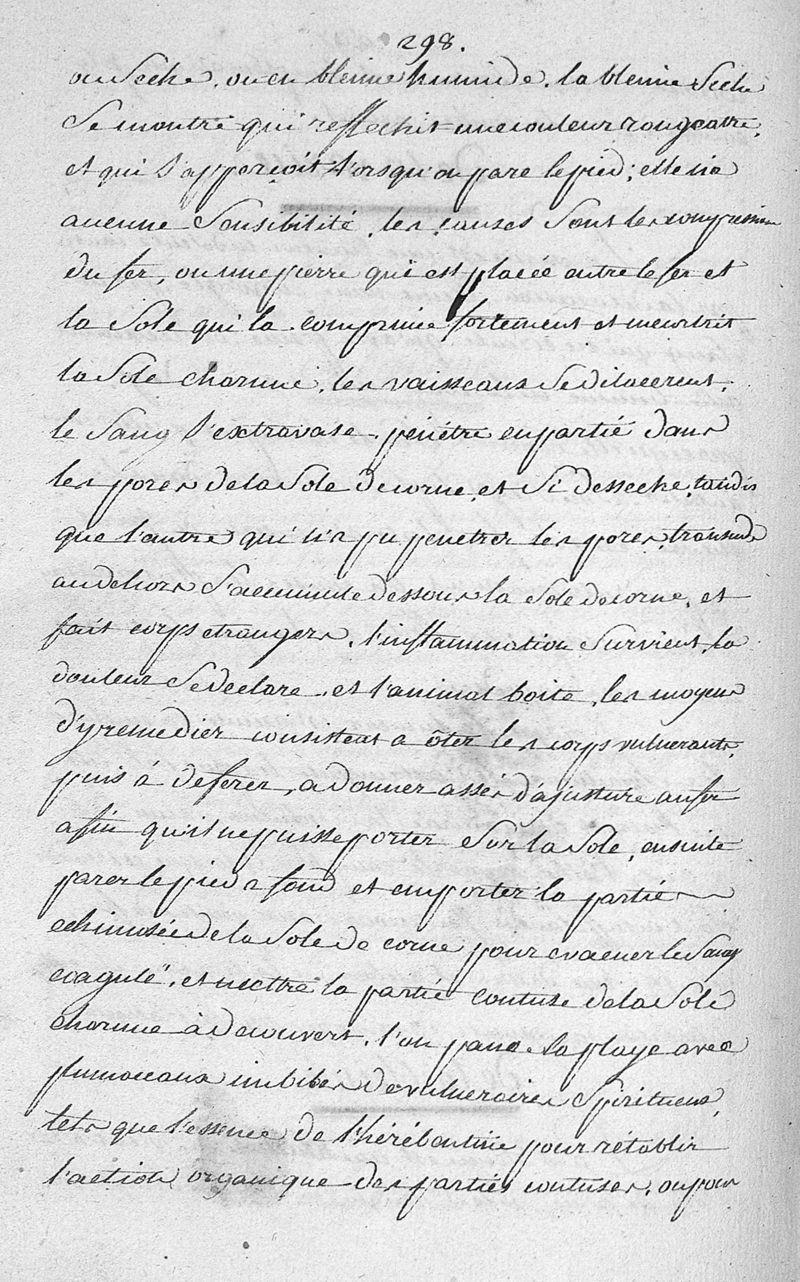 298.
ou Seche, ou en bleime humide. la bleime Seche
Se montre qui reflechit une couleur rougeatre,
et qui S'apperçoit lorsqu'on pare le pied; elle n'a
aucune Sensibilité, les causes Sont les compression
du fer, ou une pierre qui est placée entre le fer et
la Sole qui la comprime fortement et meurtrit
la Sole charnue, les vaisseaux Se dilacerent,
le Sang S'extravase, penétre en partie dans
les pores de la Sole de corne, et Si desseche, tandis
que l'autre qui n'a pu penetrer les pores, transude
au dehors S'accumule dessous la Sole de corne, et
fait corps etrangers, l'inflammation Survient, la
douleur Se declare, et l'animal boite, les moyens
d'y remedier consistent a ôter les corps vulnerants,
puis à deferer, a donner assés d'ajusture au fer
afin qu'il ne puisse porter Sur la Sole, ensuite
parer le pied a fond et emporter la partie
echimosée de la Sole de corne pour evacuer le Sang
coagulé, et mettre la partie contuse de la Sole
charnue à decouvert, l'on panse la playe avec
plumaceaux imbibés de vulneraires Spiritueux,
tels que l'essence de thérébentine pour retablir
l'action organique des parties contuses, ou pour